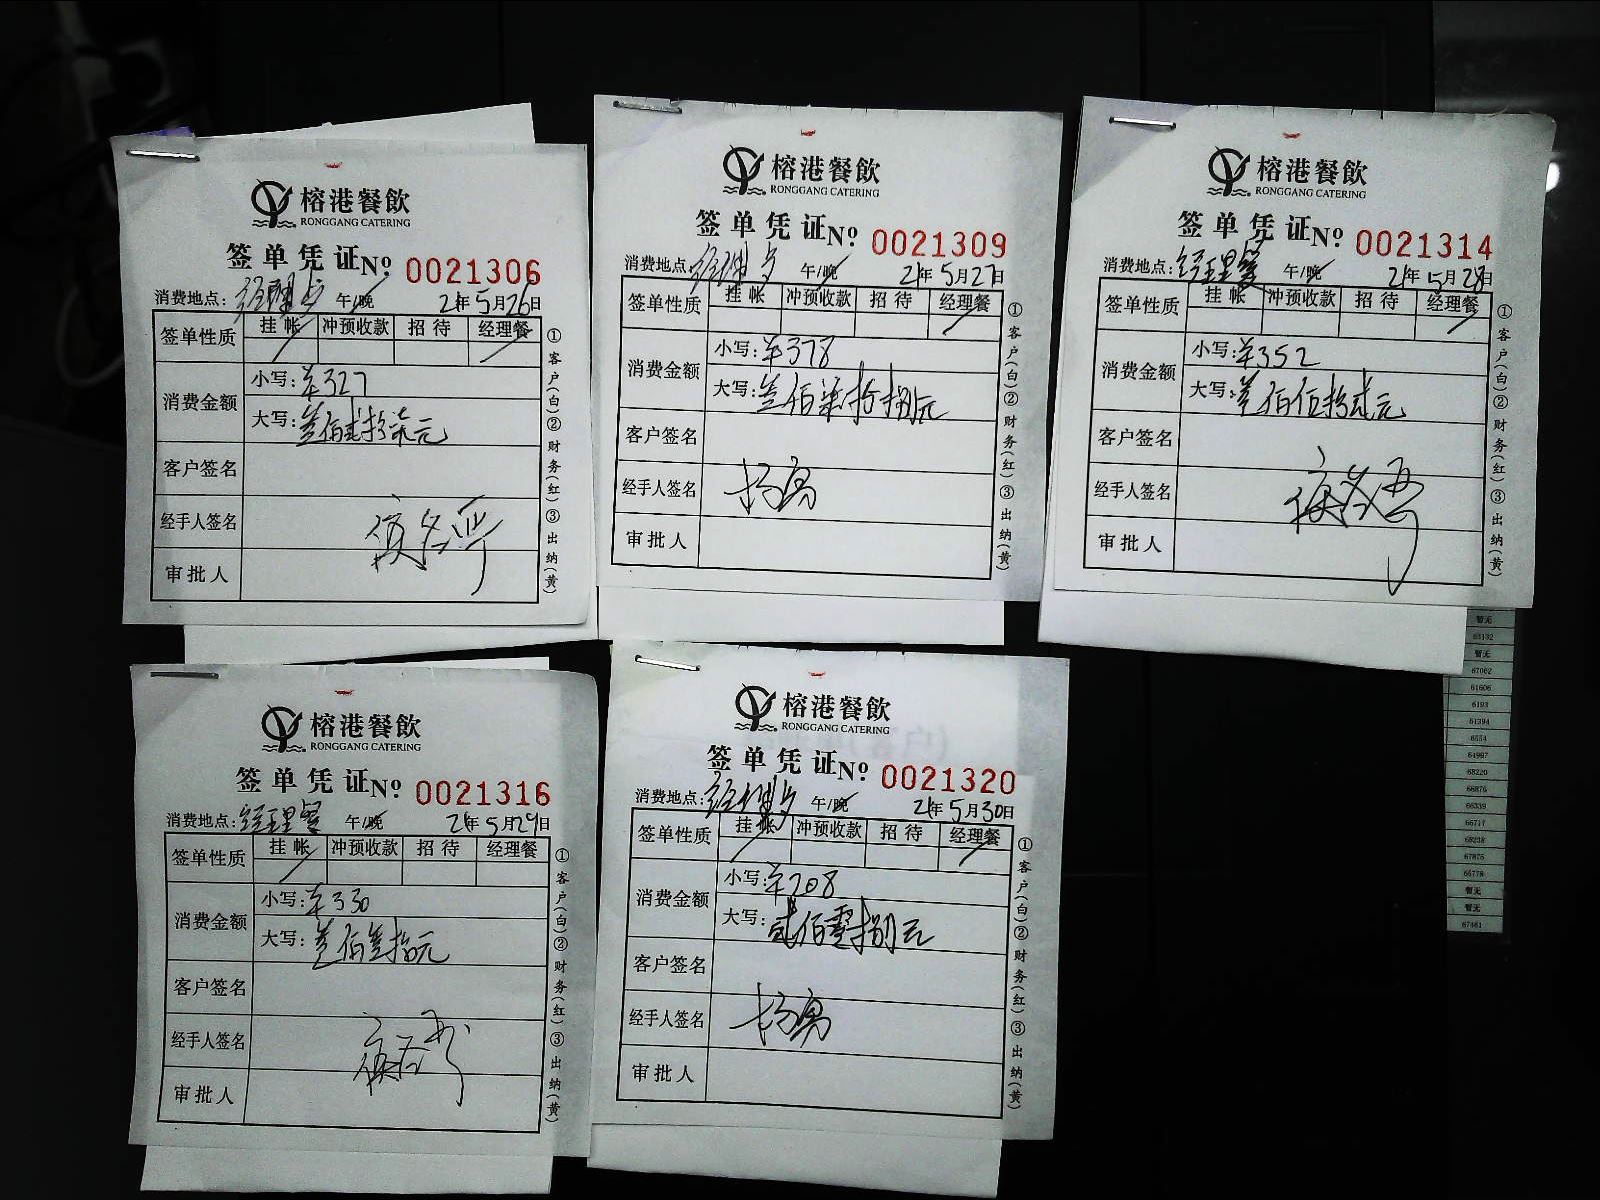 榕港餐飲
RONGGANG CATERING
签单凭证 No 0021306
消费地点: 经理 午/晚 21年5月26日
签单性质 挂帐 冲预收款 招待 经理餐
消费金额 小写:¥327
大写:叁佰贰拾柒元
客户签名
经手人签名
审批人
①客户(白)②财务(红)③出纳(黄)
榕港餐飲
RONGGANG CATERING
签单凭证 No 0021309
消费地点: 经理 午/晚 21年5月27日
签单性质 挂帐 冲预收款 招待 经理餐
消费金额 小写:¥378
大写:叁佰柒拾捌元
客户签名
经手人签名
审批人
①客户(白)②财务(红)③出纳(黄)
榕港餐飲
RONGGANG CATERING
签单凭证 No 0021314
消费地点: 经理餐 午/晚 21年5月28日
签单性质 挂帐 冲预收款 招待 经理餐
消费金额 小写:¥352
大写:叁佰伍拾贰元
客户签名
经手人签名
审批人
①客户(白)②财务(红)③出纳(黄)
榕港餐飲
RONGGANG CATERING
签单凭证 No 0021316
消费地点: 经理餐 午/晚 21年5月29日
签单性质 挂帐 冲预收款 招待 经理餐
消费金额 小写:¥330
大写:叁佰叁拾元
客户签名
经手人签名
审批人
①客户(白)②财务(红)③出纳(黄)
榕港餐飲
RONGGANG CATERING
签单凭证 No 0021320
消费地点: 经理 午/晚 21年5月30日
签单性质 挂帐 冲预收款 招待 经理餐
消费金额 小写:¥208
大写:贰佰零捌元
客户签名
经手人签名
审批人
①客户(白)②财务(红)③出纳(黄)
暂无
暂无
67062
61606
6193
61394
暂无
暂无